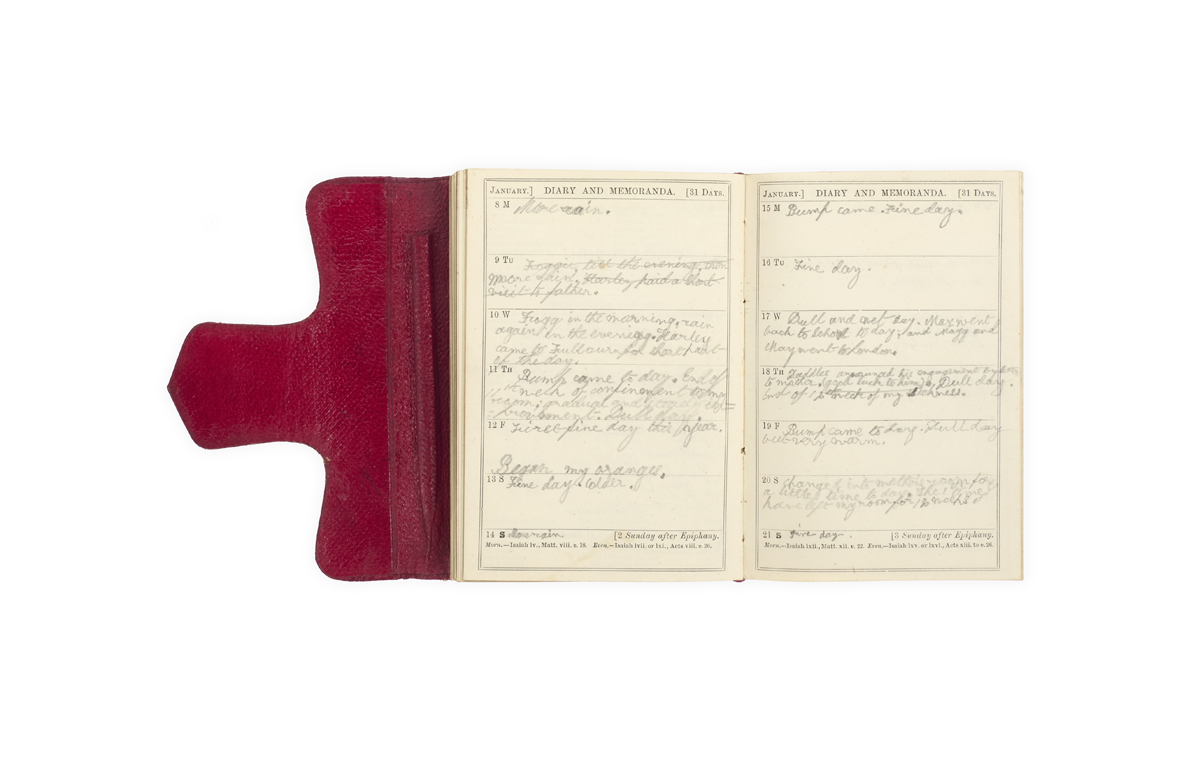 JANUARY.] DIARY AND MEMORANDA. [31 DAYS.
8 M More rain.
9 TU Foggie, till the evening, then
More rain, Harley paid a short
visit to father.
10 W Fogg in the morning, rain
again in the evening. Harley
came to Fulbourn for short part
of the day.
11 TH Bump came to day. End of
week of confinement to my
room.
Dull day.
12 F First fine day this year.
Began my oranges.
13 S Fine day. Colder.
14 S More rain. [2 Sunday after Epiphany.
MORN.—Isaiah lv., Matt. viii. v. 18. EVEN.—Isaiah lvii. or lxi., Acts viii. v. 26.
JANUARY.] DIARY AND MEMORANDA. [31 DAYS.
15 M Bump came. Fine day.
16 TU Fine day.
17 W Dull and wet day. May went
back to school to day, and Magg and
May went to London.
18 TH announced his engagement
to mother. (good luck to him), Dull day.
End of week of my sickness.
19 F Bump came to day. Dull day
but very warm.
20 S Changed into mother's room for
a little time to day. The time I
have left my room for weeks
21 S Fine day. [3 Sunday after Epiphany.
MORN.—Isaiah lxii., Matt. xii. v. 22. EVEN.—Isaiah lxv. or lxvi., Acts xiii. to v. 26.